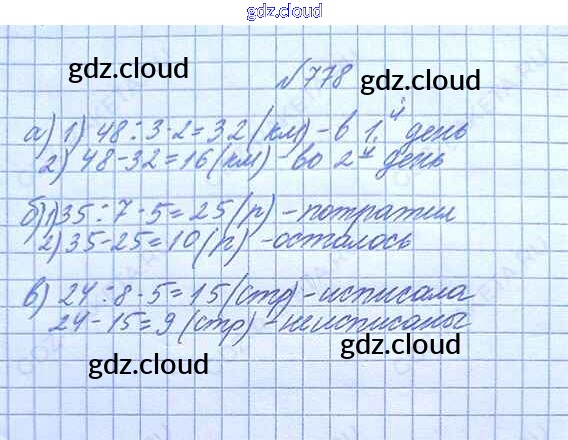 gdz.cloud
gdz.cloud
№778
а) 1) 48 : 3 · 2 = 32 (км) - в 1й день
2) 48 - 32 = 16 (км) - во 2й день
gdz.cloud gdz.cloud
б) 1) 35 : 7 · 5 = 25 (р) - потратил
2) 35 - 25 = 10 (р) - осталось
в) 24 : 8 · 5 = 15 (стр) - исписала
24 - 15 = 9 (стр) - неисписаны
gdz.cloud
gdz.cloud